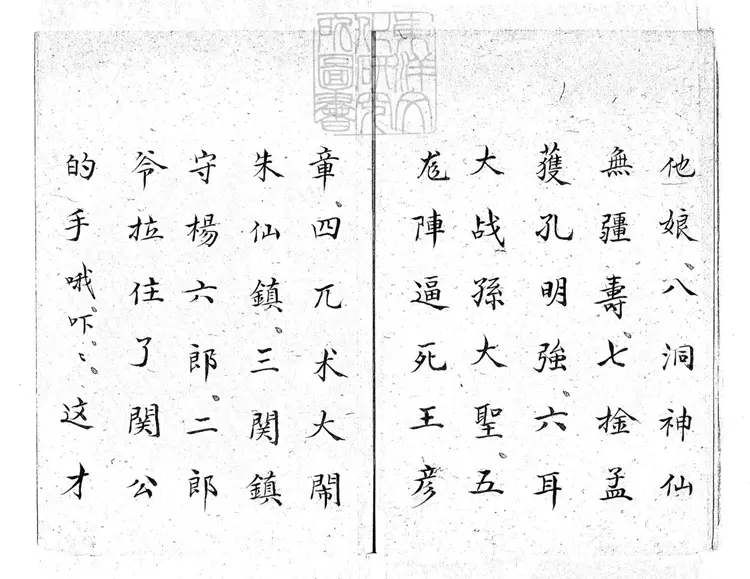 他娘、八洞神仙
無疆壽、七擒孟
獲孔明強、六耳
大战孫大聖、五
龙陣逼死王彦
章、四兀术大鬧
朱仙鎮、三関鎮
守楊六郎、二郎
爷拉住了関公
的手哦吓、〻、这才
東洋文化研究所圖書